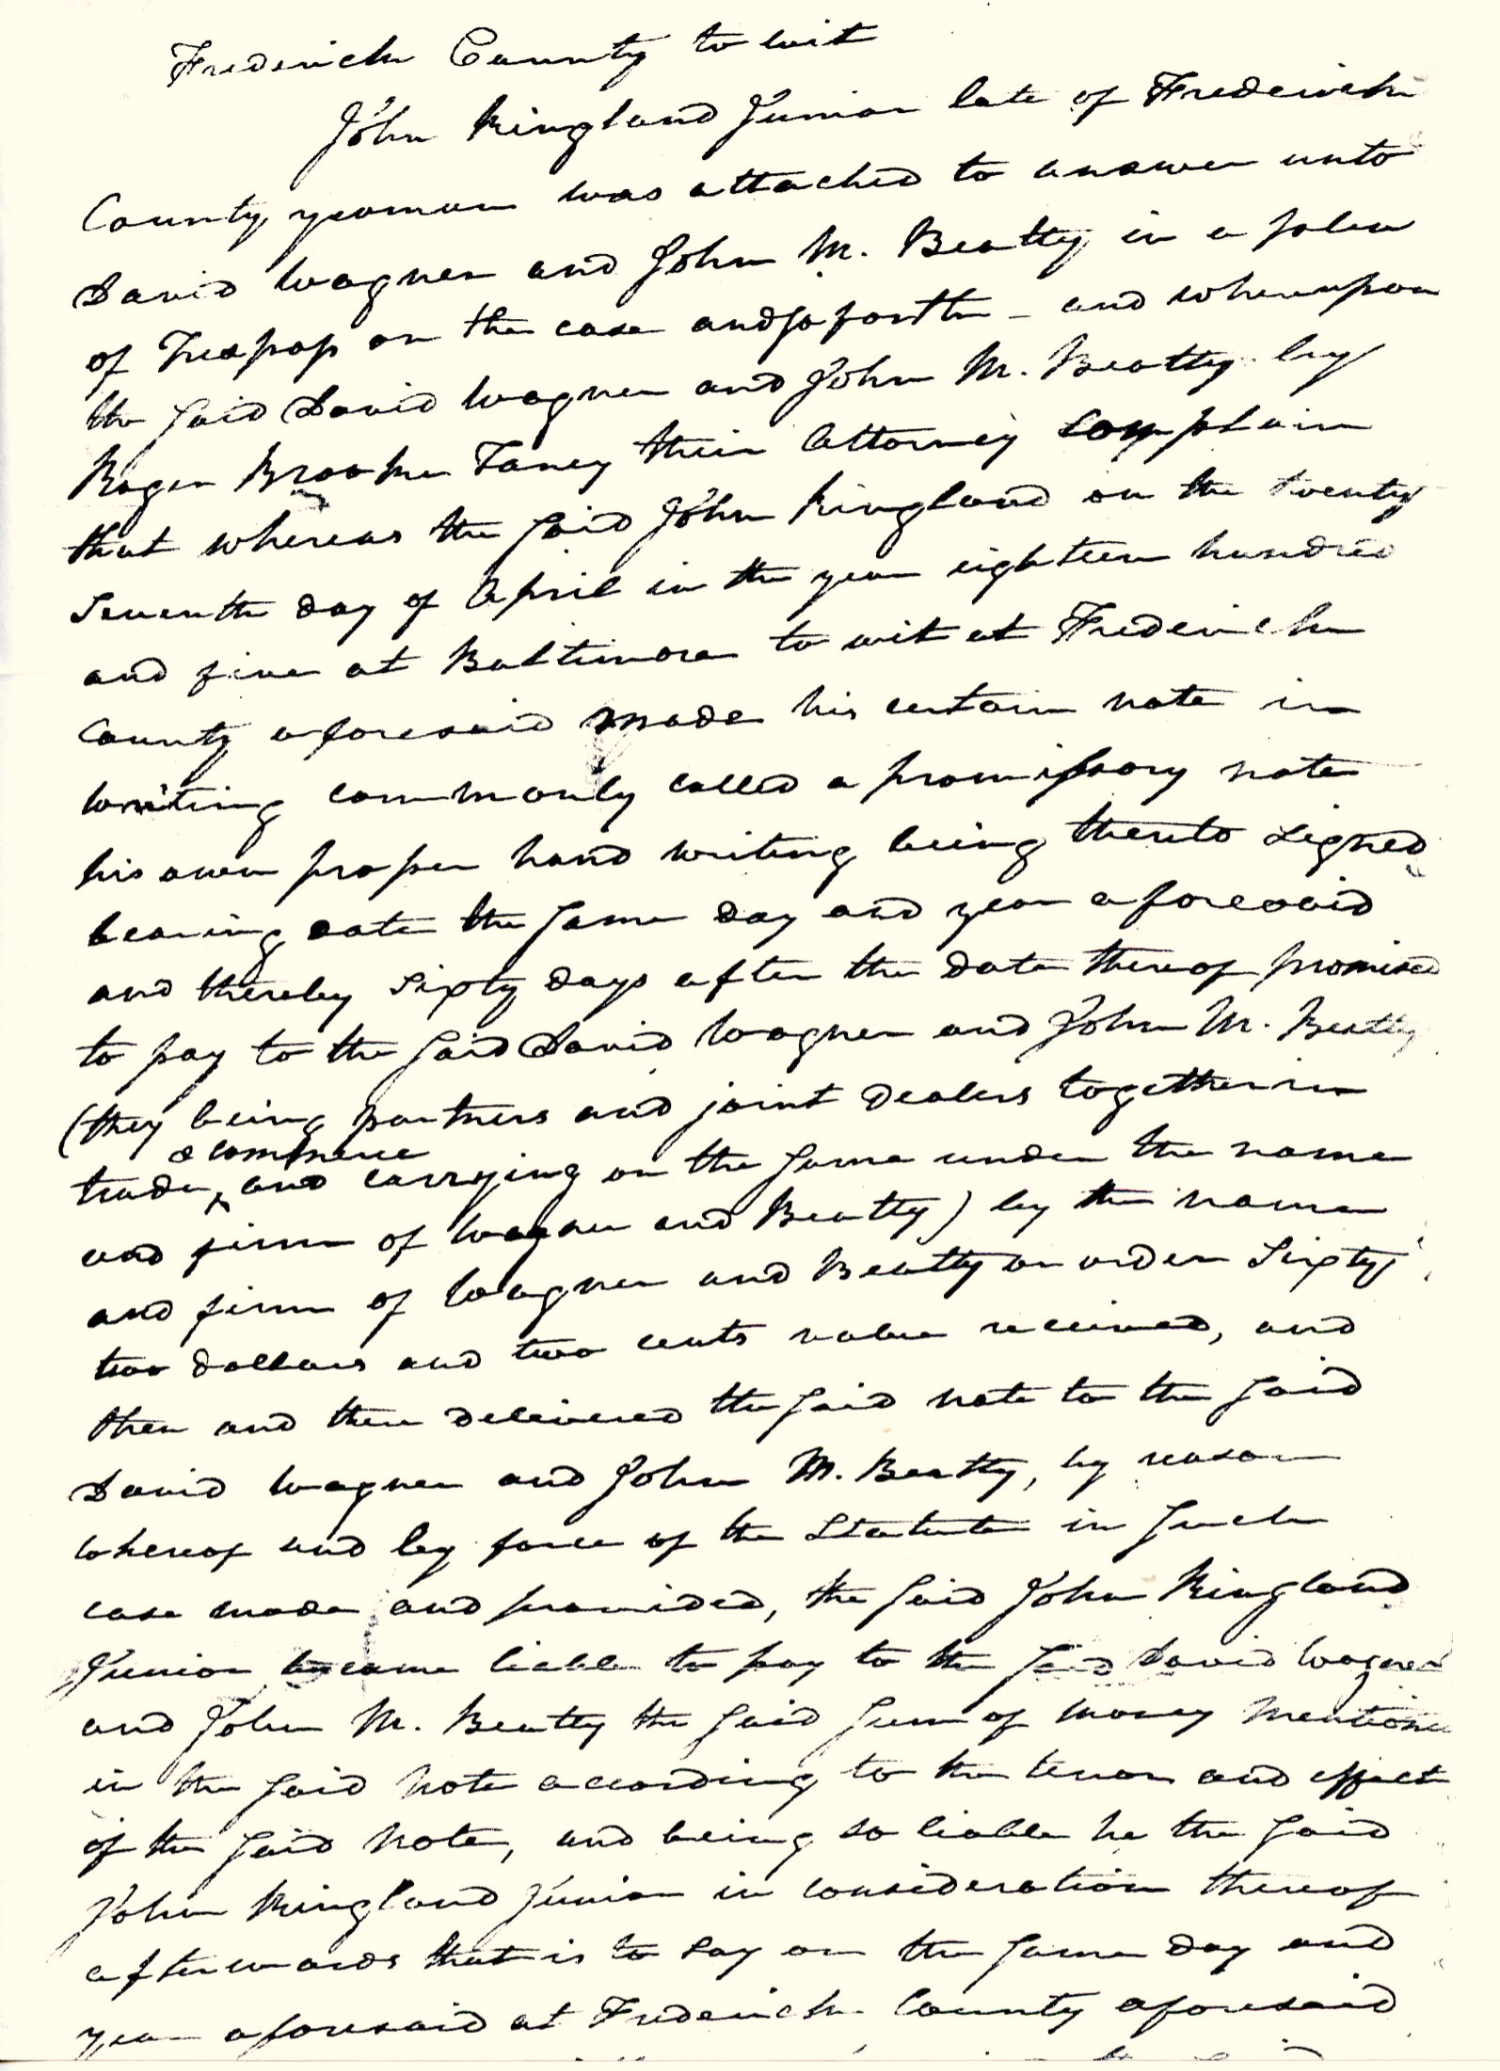 Frederick County to wit
John Kingland Junior late of Frederick
County yeoman was attached to answer unto
David Wagner and John M. Beatty in a plea
of Trespass on the case and so forth - and whereupon
the said David Wagner and John M. Beatty by
Roger Brooke Taney their Attorney complain
that whereas the said John Kingland on the twenty
seventh day of April in the year eighteen hundred
and five at Baltimore to wit at Frederick
County aforesaid made his certain note in
writing commonly called a promissory note
his own proper hand writing being thereto signed
bearing date the same day and year aforesaid
and thereby sixty days after the date thereof promised
to pay to the said David Wagner and John M. Beatty
(they being partners and joint dealers together in
trade & commerce and carrying on the same under the name
and firm of Wagner and Beatty) by the name
and firm of Wagner and Beatty or order Sixty
two dollars and two cents value received, and
then and there delivered the said note to the said
David Wagner and John M. Beatty, by reason
whereof and by force of the Statute in such
case made and provided, the said John Kingland
Junior became liable to pay to the said David Wagner
and John M. Beatty the said sum of money mentioned
in the said note according to the tenor and effect
of the said note, and being so liable he the said
John Kingland Junior in consideration thereof
afterwards that is to say on the same day and
year aforesaid at Frederick County aforesaid